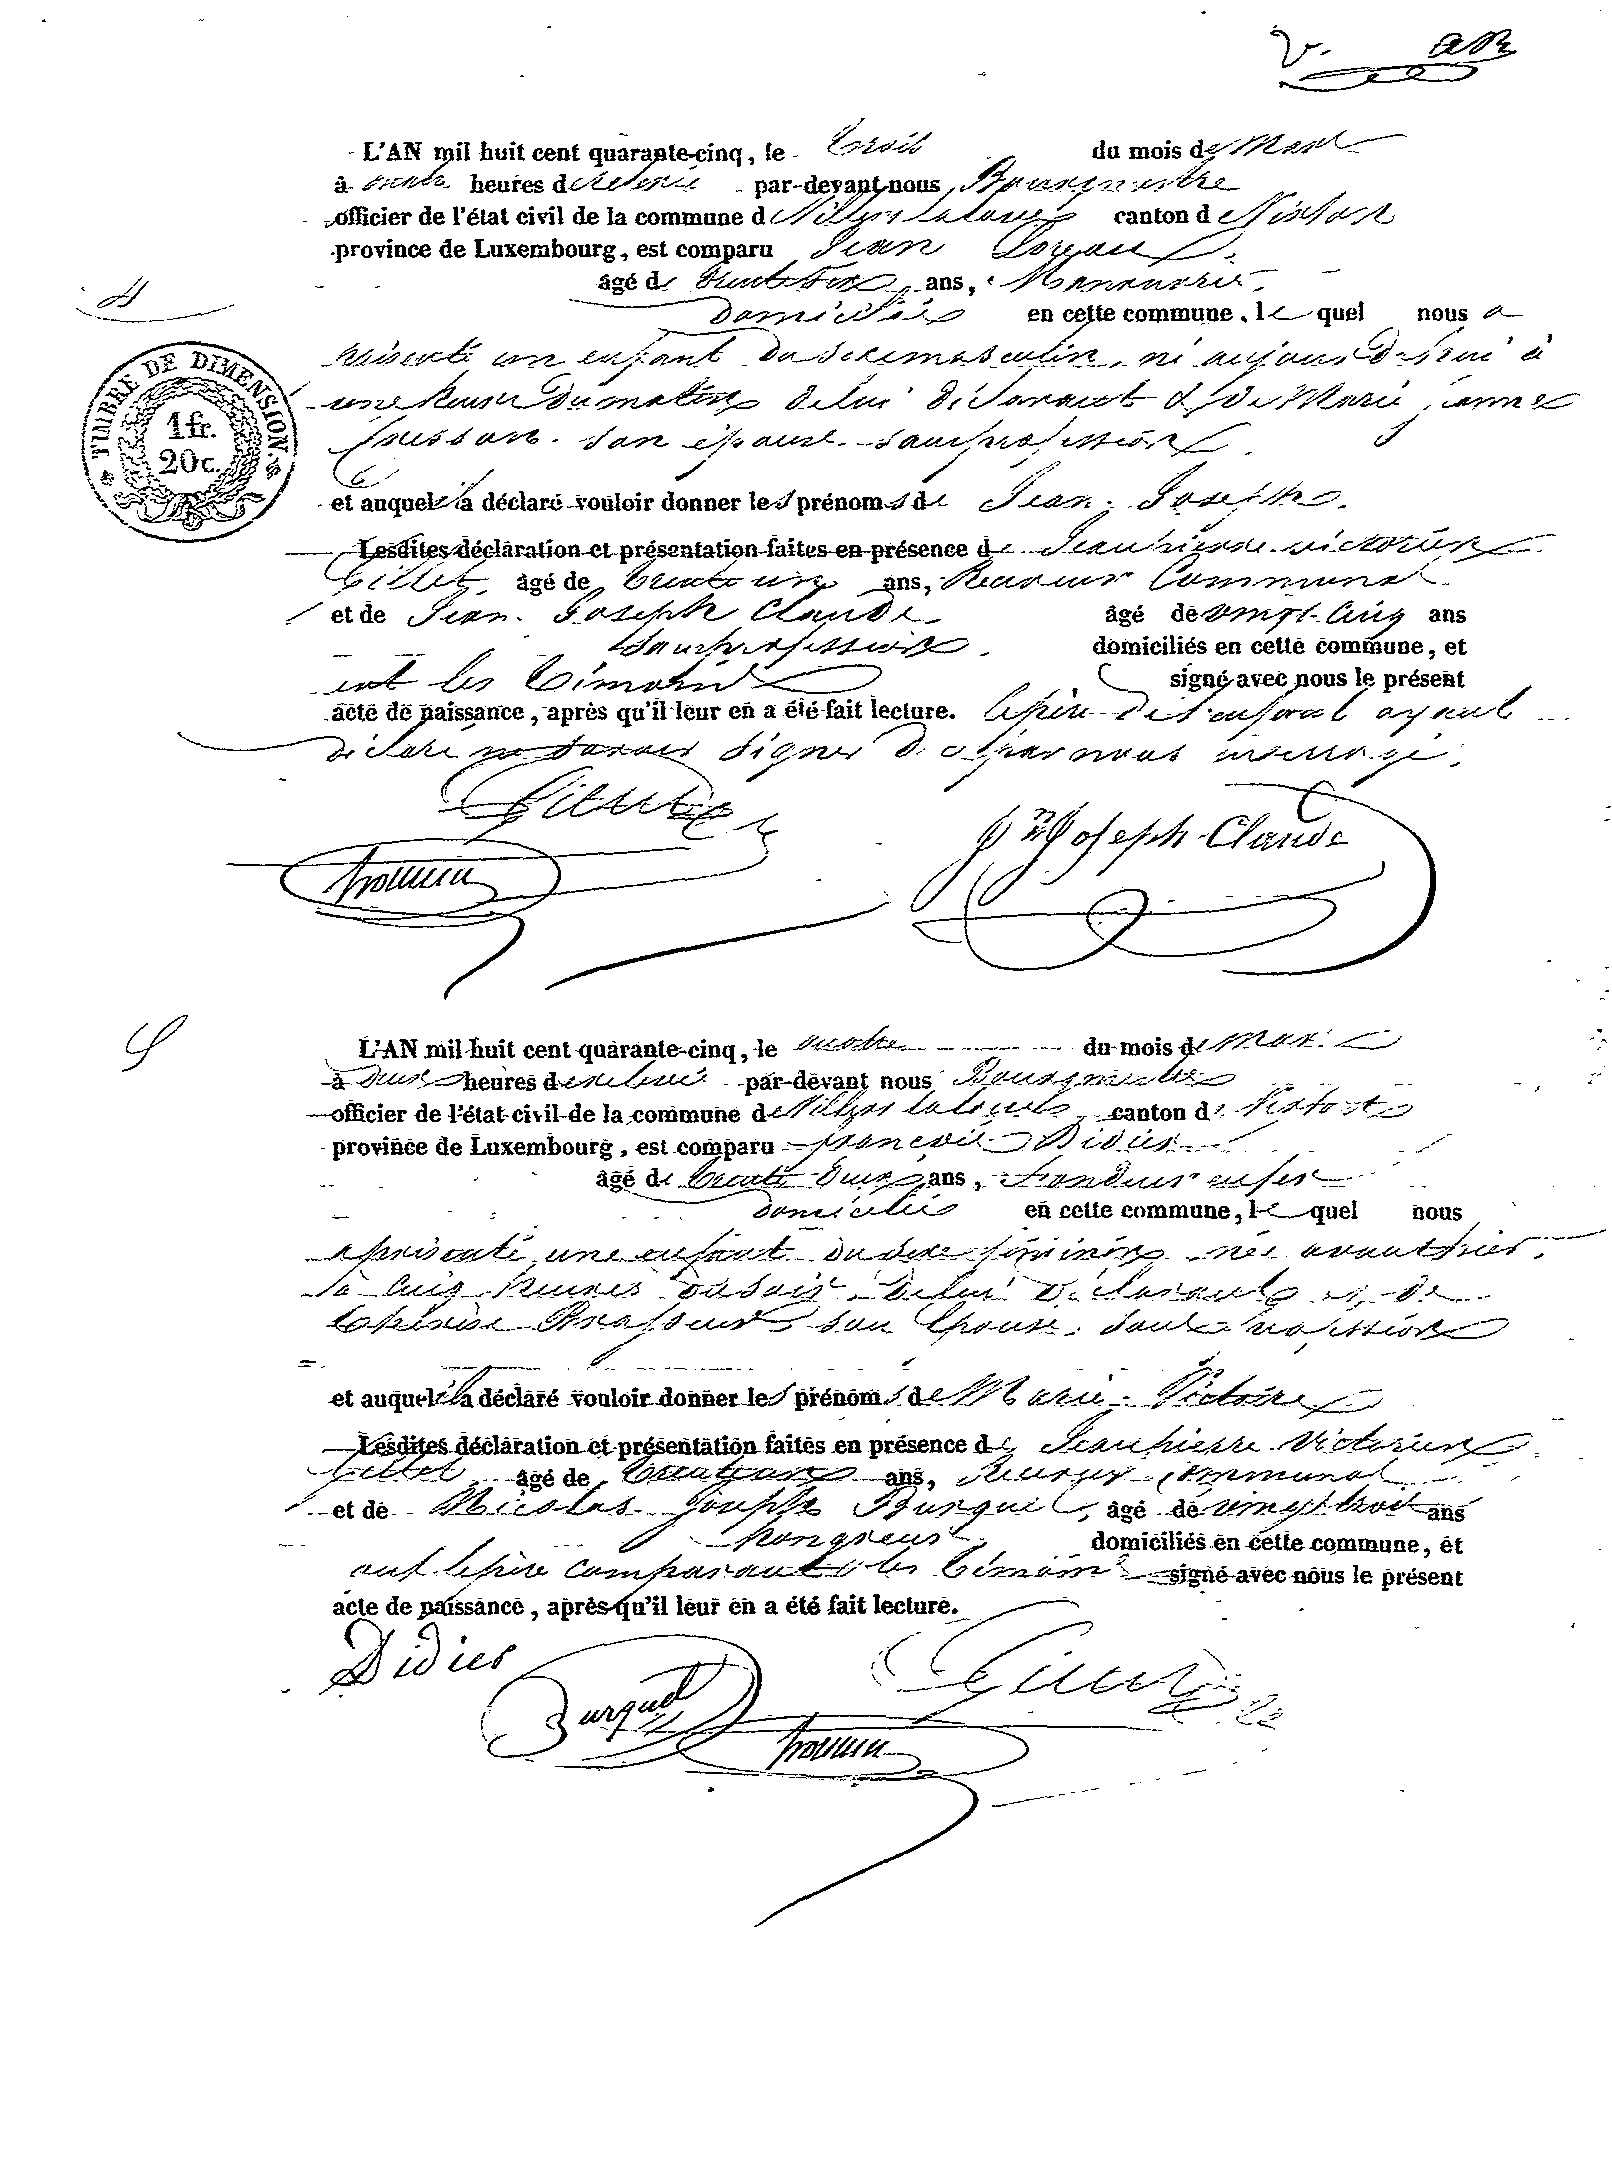 V.
L'AN mil huit cent quarante-cinq, le trois du mois de Mars
à quatre heures de relevée par-devant nous Bourgmestre
officier de l'état civil de la commune de Villers la loue canton de Virton
province de Luxembourg, est comparu Jean
âgé de ans, Manœuvre
domicilié en cette commune, le quel nous a
présenté un enfant du sexe masculin, né aujourd'hui à
une heure du matin de lui déclarant & de Marie jeanne
son épouse sans profession
et auquel il a déclaré vouloir donner les prénoms de Jean Joseph.
Lesdites déclaration et présentation faites en présence de Jean pierre victorien
Gillet âgé de trente un ans, Receveur Communal
et de Jean Joseph Claude âgé de vingt-cinq ans
sans profession domiciliés en cette commune, et
ont les témoins signé avec nous le présent
acte de naissance, après qu'il leur en a été fait lecture. le père dit enfant ayant
déclaré ne savoir signer de ce par nous interrogé.
TIMBRE DE DIMENSION.
1 fr.
20 c.
Gillet
Jn Joseph Claude
5
L'AN mil huit cent quarante-cinq, le quatre du mois de Mars
à deux heures de relevée par-devant nous Bourgmestre
officier de l'état civil de la commune de Villers la loue canton de Virton
province de Luxembourg, est comparu françois Didier
âgé de trente deux ans, fondeur en fer
domicilié en cette commune, le quel nous
a présenté une enfant du sexe féminin née avant hier
à cinq heures du soir de lui déclarant et de
thérèse Brasseur son épouse sans profession
et auquel il a déclaré vouloir donner les prénoms de Marie Victoire
Lesdites déclaration et présentation faites en présence de Jean pierre Victorien
Gillet âgé de trente un ans, Receveur communal
et de Nicolas Joseph Burquel, âgé de vingt trois ans
hongreur domiciliés en cette commune, et
ont le père comparant & les témoins signé avec nous le présent
acte de naissance, après qu'il leur en a été fait lecture.
Didier
Burquel
Gillet